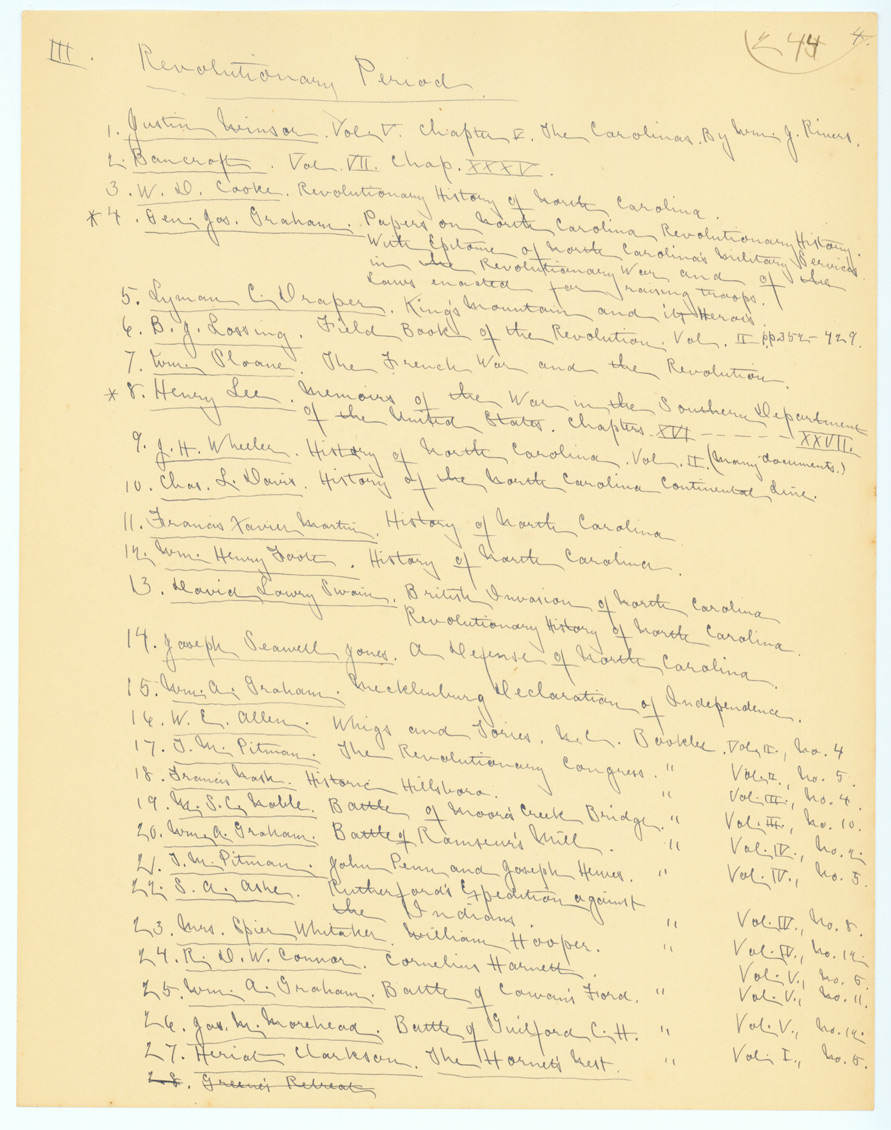 III. Revolutionary Period. 244 4.
1. Justin Winsor. Vol. V. Chapter V. The Carolinas. By Wm. J. Rivers.
2. Bancroft. Vol. VII. Chap. XXXV.
3. W. D. Cooke. Revolutionary History of North Carolina.
* 4. Gen. Jas. Graham. Papers on North Carolina Revolutionary History.
With Epitome of North Carolina's Military Services
in the Revolutionary War and of the
Laws enacted for raising troops.
5. Lyman C. Draper. King's Mountain and its Heroes.
6. B. J. Lossing. Field Book of the Revolution. Vol. II pp. 352-429.
7. Wm. Sloane. The French War and the Revolution.
* 8. Henry Lee. Memoirs of the War in the Southern Department
of the United States. Chapters XVI - - - - - XXVII.
9. J. H. Wheeler. History of North Carolina. Vol. II. (Many documents.)
10. Chas. L. Davis. History of the North Carolina Continental Line.
11. Francis Xavier Martin. History of North Carolina
12. Wm. Henry Foote. History of North Carolina.
13. David Lowry Swain. British Invasion of North Carolina
Revolutionary History of North Carolina.
14. Joseph Seawell Jones. A Defense of North Carolina.
15. Wm. A. Graham. Mecklenburg Declaration of Independence.
16. W. C. Allen. Whigs and Tories. N.C. Booklet. Vol. II., No. 4
17. T. M. Pitman. The Revolutionary Congress. " Vol. II., No. 5.
18. Francis Nash. Historic Hillsboro. " Vol. III., No. 4.
19. M. S. C. Noble. Battle of Moore's Creek Bridge. " Vol. III., No. 10.
20. Wm. A. Graham. Battle of Ramseur's Mill. " Vol. IV., No. 2.
21. T. M. Pitman. John Penn and Joseph Hewes. " Vol. IV., No. 5.
22. S. A. Ashe. Rutherford's Expedition against
the Indians. " Vol. IV., No. 8.
23. Mrs. Spier Whitaker. William Hooper. " Vol. IV., No. 12.
24. R. D. W. Connor. Cornelius Harnett. Vol. V., No. 5.
25. Wm. A. Graham. Battle of Cowan's Ford. " Vol. V., No. 11.
26. Jas. M. Morehead. Battle of Guilford C. H. " Vol. V., No. 12.
27. Heriot Clarkson. The Hornet's Nest. " Vol. I., No. 5.
28. Greene's Retreat